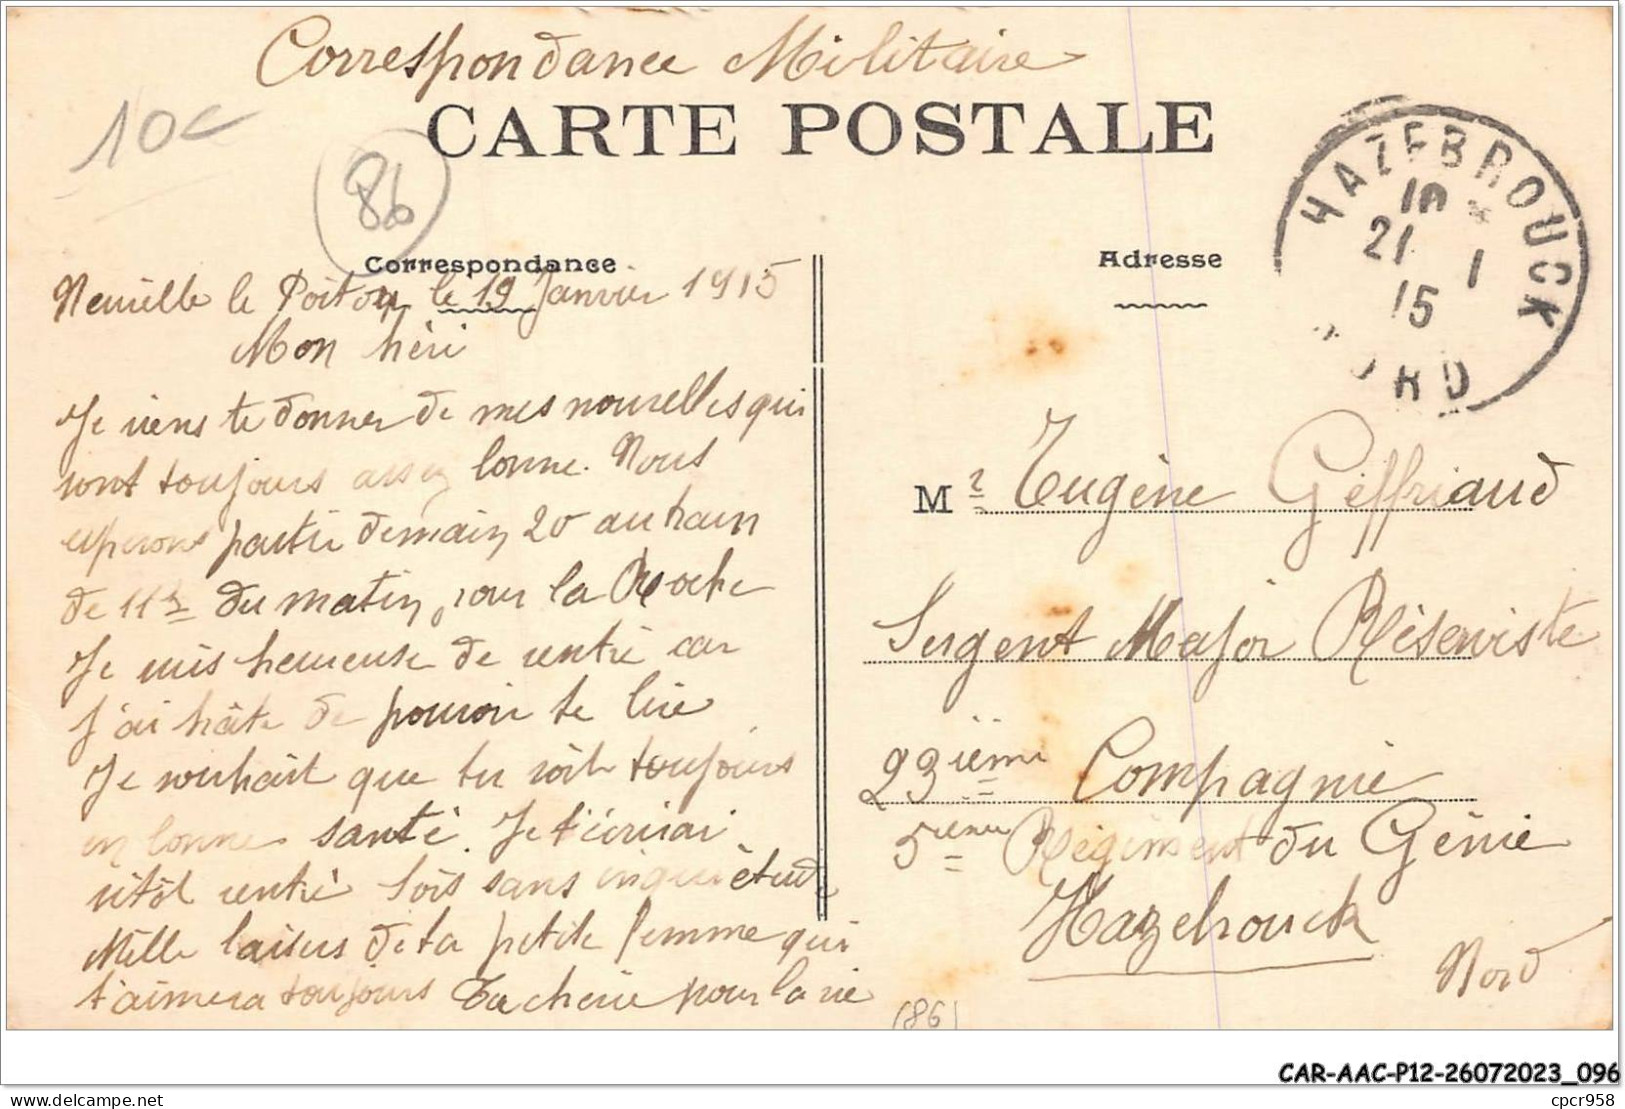 Correspondance Militaire
CARTE POSTALE
10c
86
HAZEBROUCK
10 *
21 1
15
NORD
Correspondance
Adresse
Neuville le Poitou le 19 Janvier 1915
Mon chéri
Je viens te donner de mes nouvelles qui
sont toujours assez bonne. Nous
esperons partir demain 20 au train
de 11h du matin, pour la Roche
Je suis heureuse de rentré car
J'ai hâte de pouvoir te lire
Je souhait que tu soit toujours
en bonne santé. Je t'écrirai
sitôt rentré Sois sans inquiètude
Mille baisers de ta petite femme qui
t'aimera toujours Ta cherie pour la vie
Mr Eugène Geffriaud
Sergent Major Réserviste
23ième Compagnie
5ième Régiment du Génie
Hazebrouck
Nord
(86)
CAR-AAC-P12-26072023_096
cpcr958